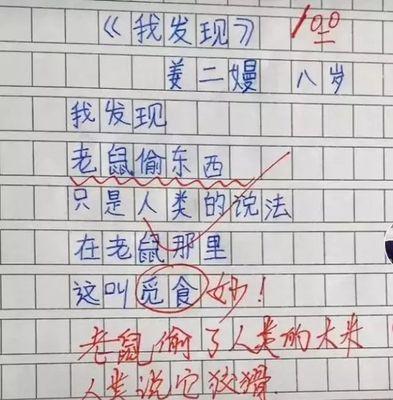 《我发现》 100
姜二嫚 八岁
我发现
老鼠偷东西
只是人类的说法
在老鼠那里
这叫觅食 妙！
老鼠偷了人类的大米
人类说它狡猾